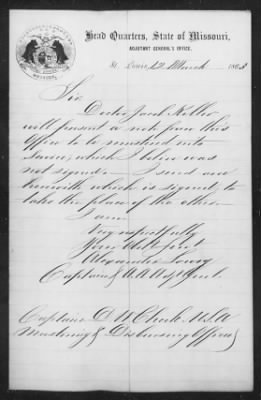 Head Quarters, State of Missouri,
ADJUTANT GENERAL'S OFFICE.
St. Louis, 12 March 1863
Sir
Doctor Jacob Keller
will present a note from this
Office to be mustered into
Service, which I believe was
not signed. I send one
herewith which is signed, to
take the place of the other.
I am
Very respectfully
Your Obt
Alexander Lowry
Captain & A.A. Adjt Genl.
Captain D W U.S.A
Mustering & Disbursing Officer